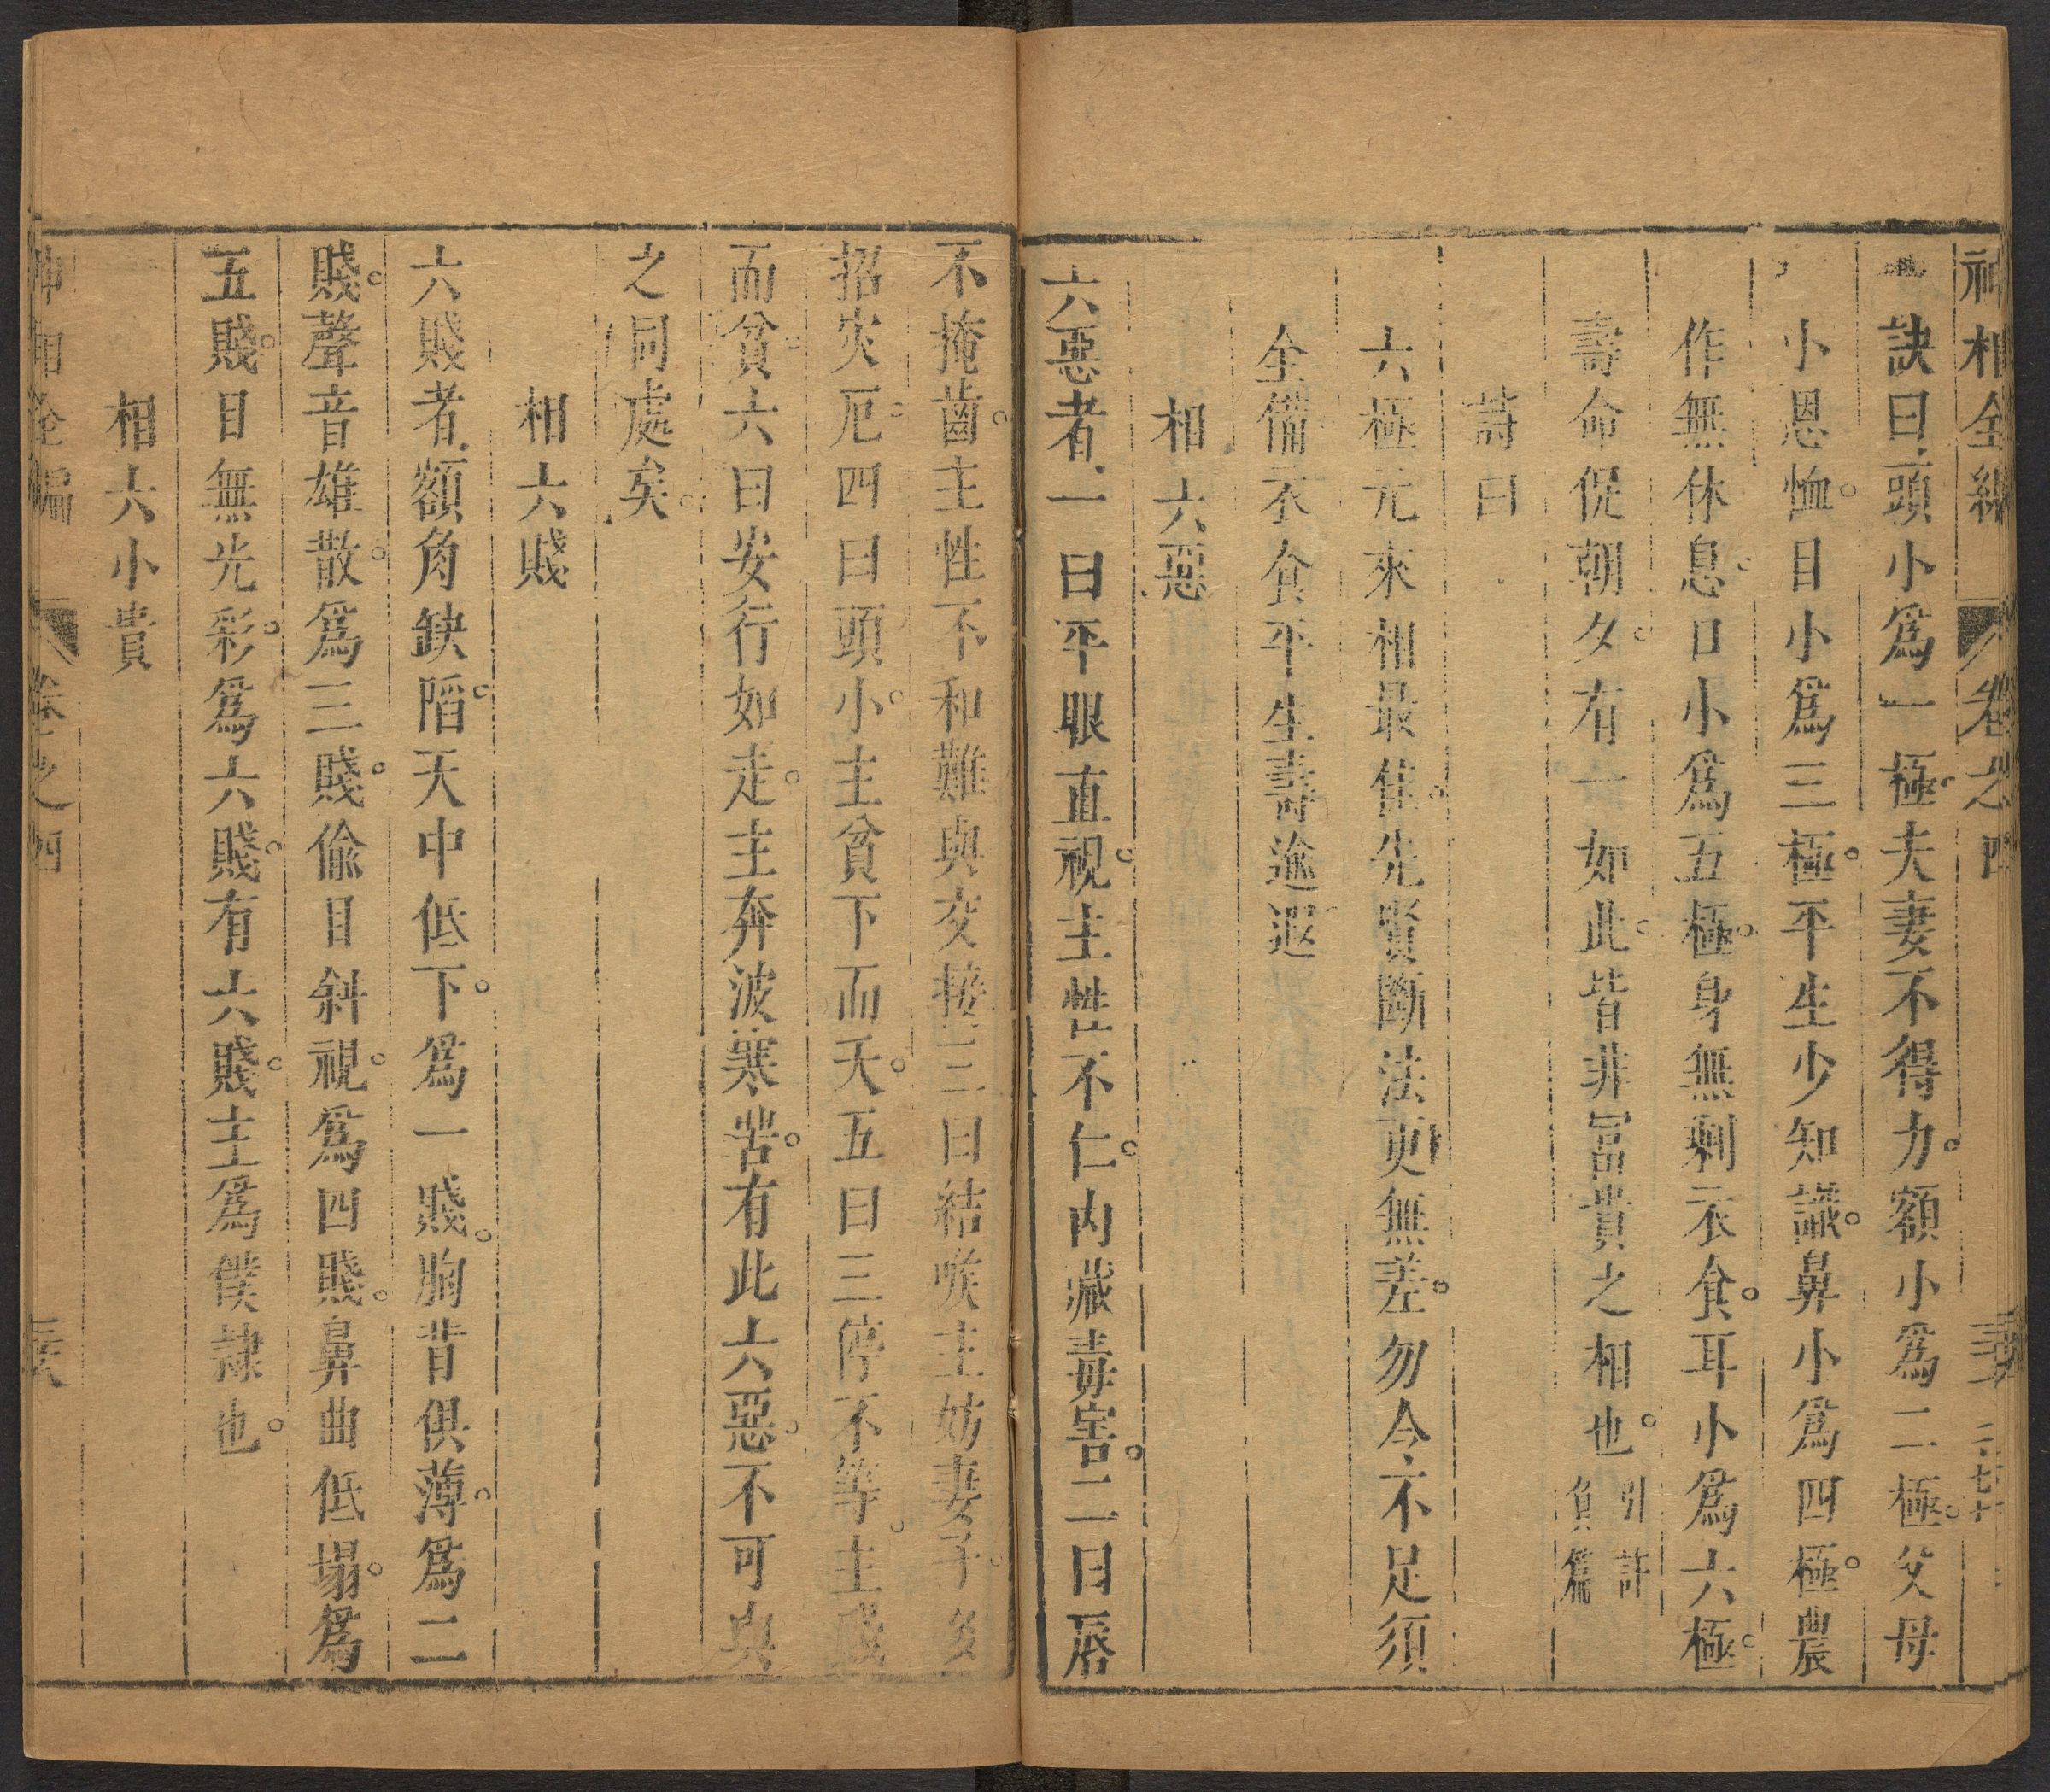 神相全編 卷之四
訣曰頭小爲一極。夫妻不得力。額小爲二極。父母
小恩恤。目小爲三極。平生少知識。鼻小爲四極。農
作無休息。口小爲五極。身無剩衣食。耳小爲六極。
壽命促朝夕。有一如此。皆非冨貴之相也。引許負篇
詩曰
六極元來相最隹。先賢斷法更無差。勿令不足須
全備。衣食平生壽逾遐。
相六惡
六惡者一曰平眼直視。主性不仁。内藏毒害。二曰唇
不掩齒。主性不和難與交接。三曰結喉主妨妻子。多
招灾厄。四曰頭小。主貧下而夭。五曰三停不等。主賤
而貧。六曰安行如走。主奔波寒苦。有此六惡。不可與
之同處矣。
相六賤
六賤者額角缺陷。天中低下。爲一賤。胸背俱薄。爲二
賤。聲音雄散。爲三賤。偷目斜視。爲四賤。鼻曲低塌。爲
五賤。目無光彩。爲六賤。有六賤。主爲僕隷也。
相六小貴
神相全編 卷之四